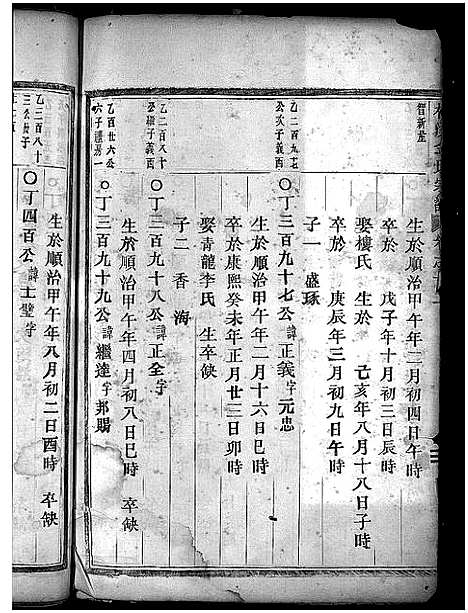 智新產
生於順治甲午年二月初四日午時
卒於 戊子年十月初三日辰時
娶樓氏 生於 己亥年八月十八日子時
卒於 庚辰年三月初九日午時
子一 盛琢
乙二百九七
公次子義酉
〇丁三百九十七公諱正義字元忠
生於順治甲午年二月十六日巳時
卒於康熙癸未年正月廿三日卯時
娶青龍李氏 生卒缺
子二 香 海
乙二百八十
〇丁三百九十八公諱正全字
生於順治甲午年四月初八日巳時 卒缺
乙百廿六公
〇丁三百九十九公諱繼達字邦賜
生於順治甲午年八月初二日酉時 卒缺
乙二百八十
〇丁四百公諱士璧字